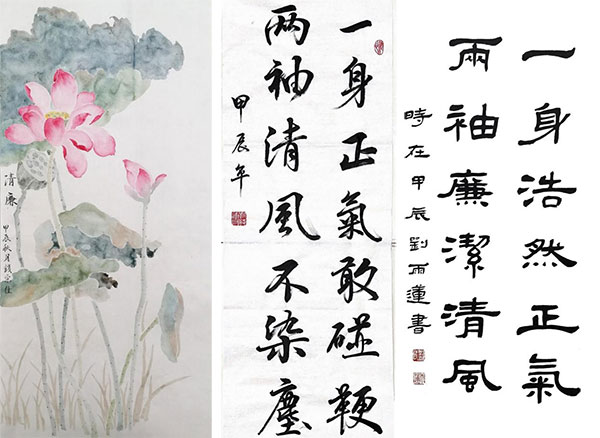 清廉
甲辰秋月
一身正氣敢碰鞕
两袖清風不染塵
甲辰年
一身浩然正氣
兩袖廉潔清風
時在甲辰劉雨蓮書